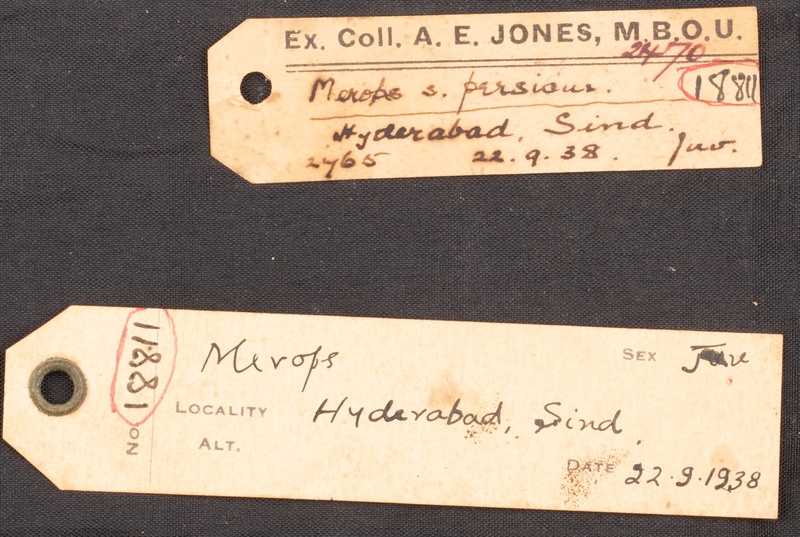 Ex. Coll. A. E. JONES, M.B.O.U.
2470
Merops s. persicus. 18811
Hyderabad, Sind.
2465 22.9.38. Juv.
18811
No.
Merops
SEX Juve
LOCALITY Hyderabad, Sind.
ALT.
DATE 22.9.1938